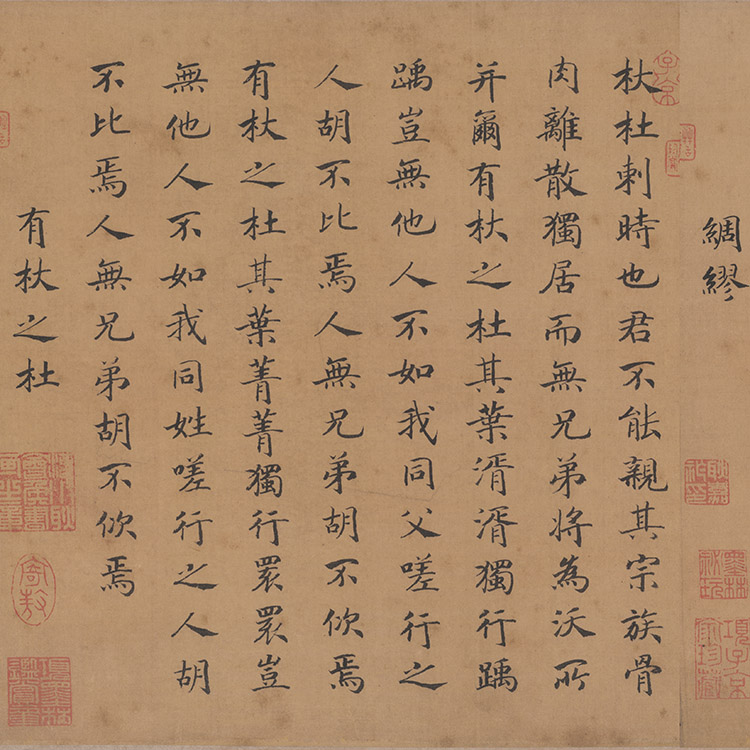 綢繆
杕杜刺時也君不能親其宗族骨
肉離散獨居而無兄弟將為沃所
并爾有杕之杜其葉湑湑獨行踽
踽豈無他人不如我同父嗟行之
人胡不比焉人無兄弟胡不佽焉
有杕之杜其葉菁菁獨行睘睘豈
無他人不如我同姓嗟行之人胡
不比焉人無兄弟胡不佽焉
有杕之杜